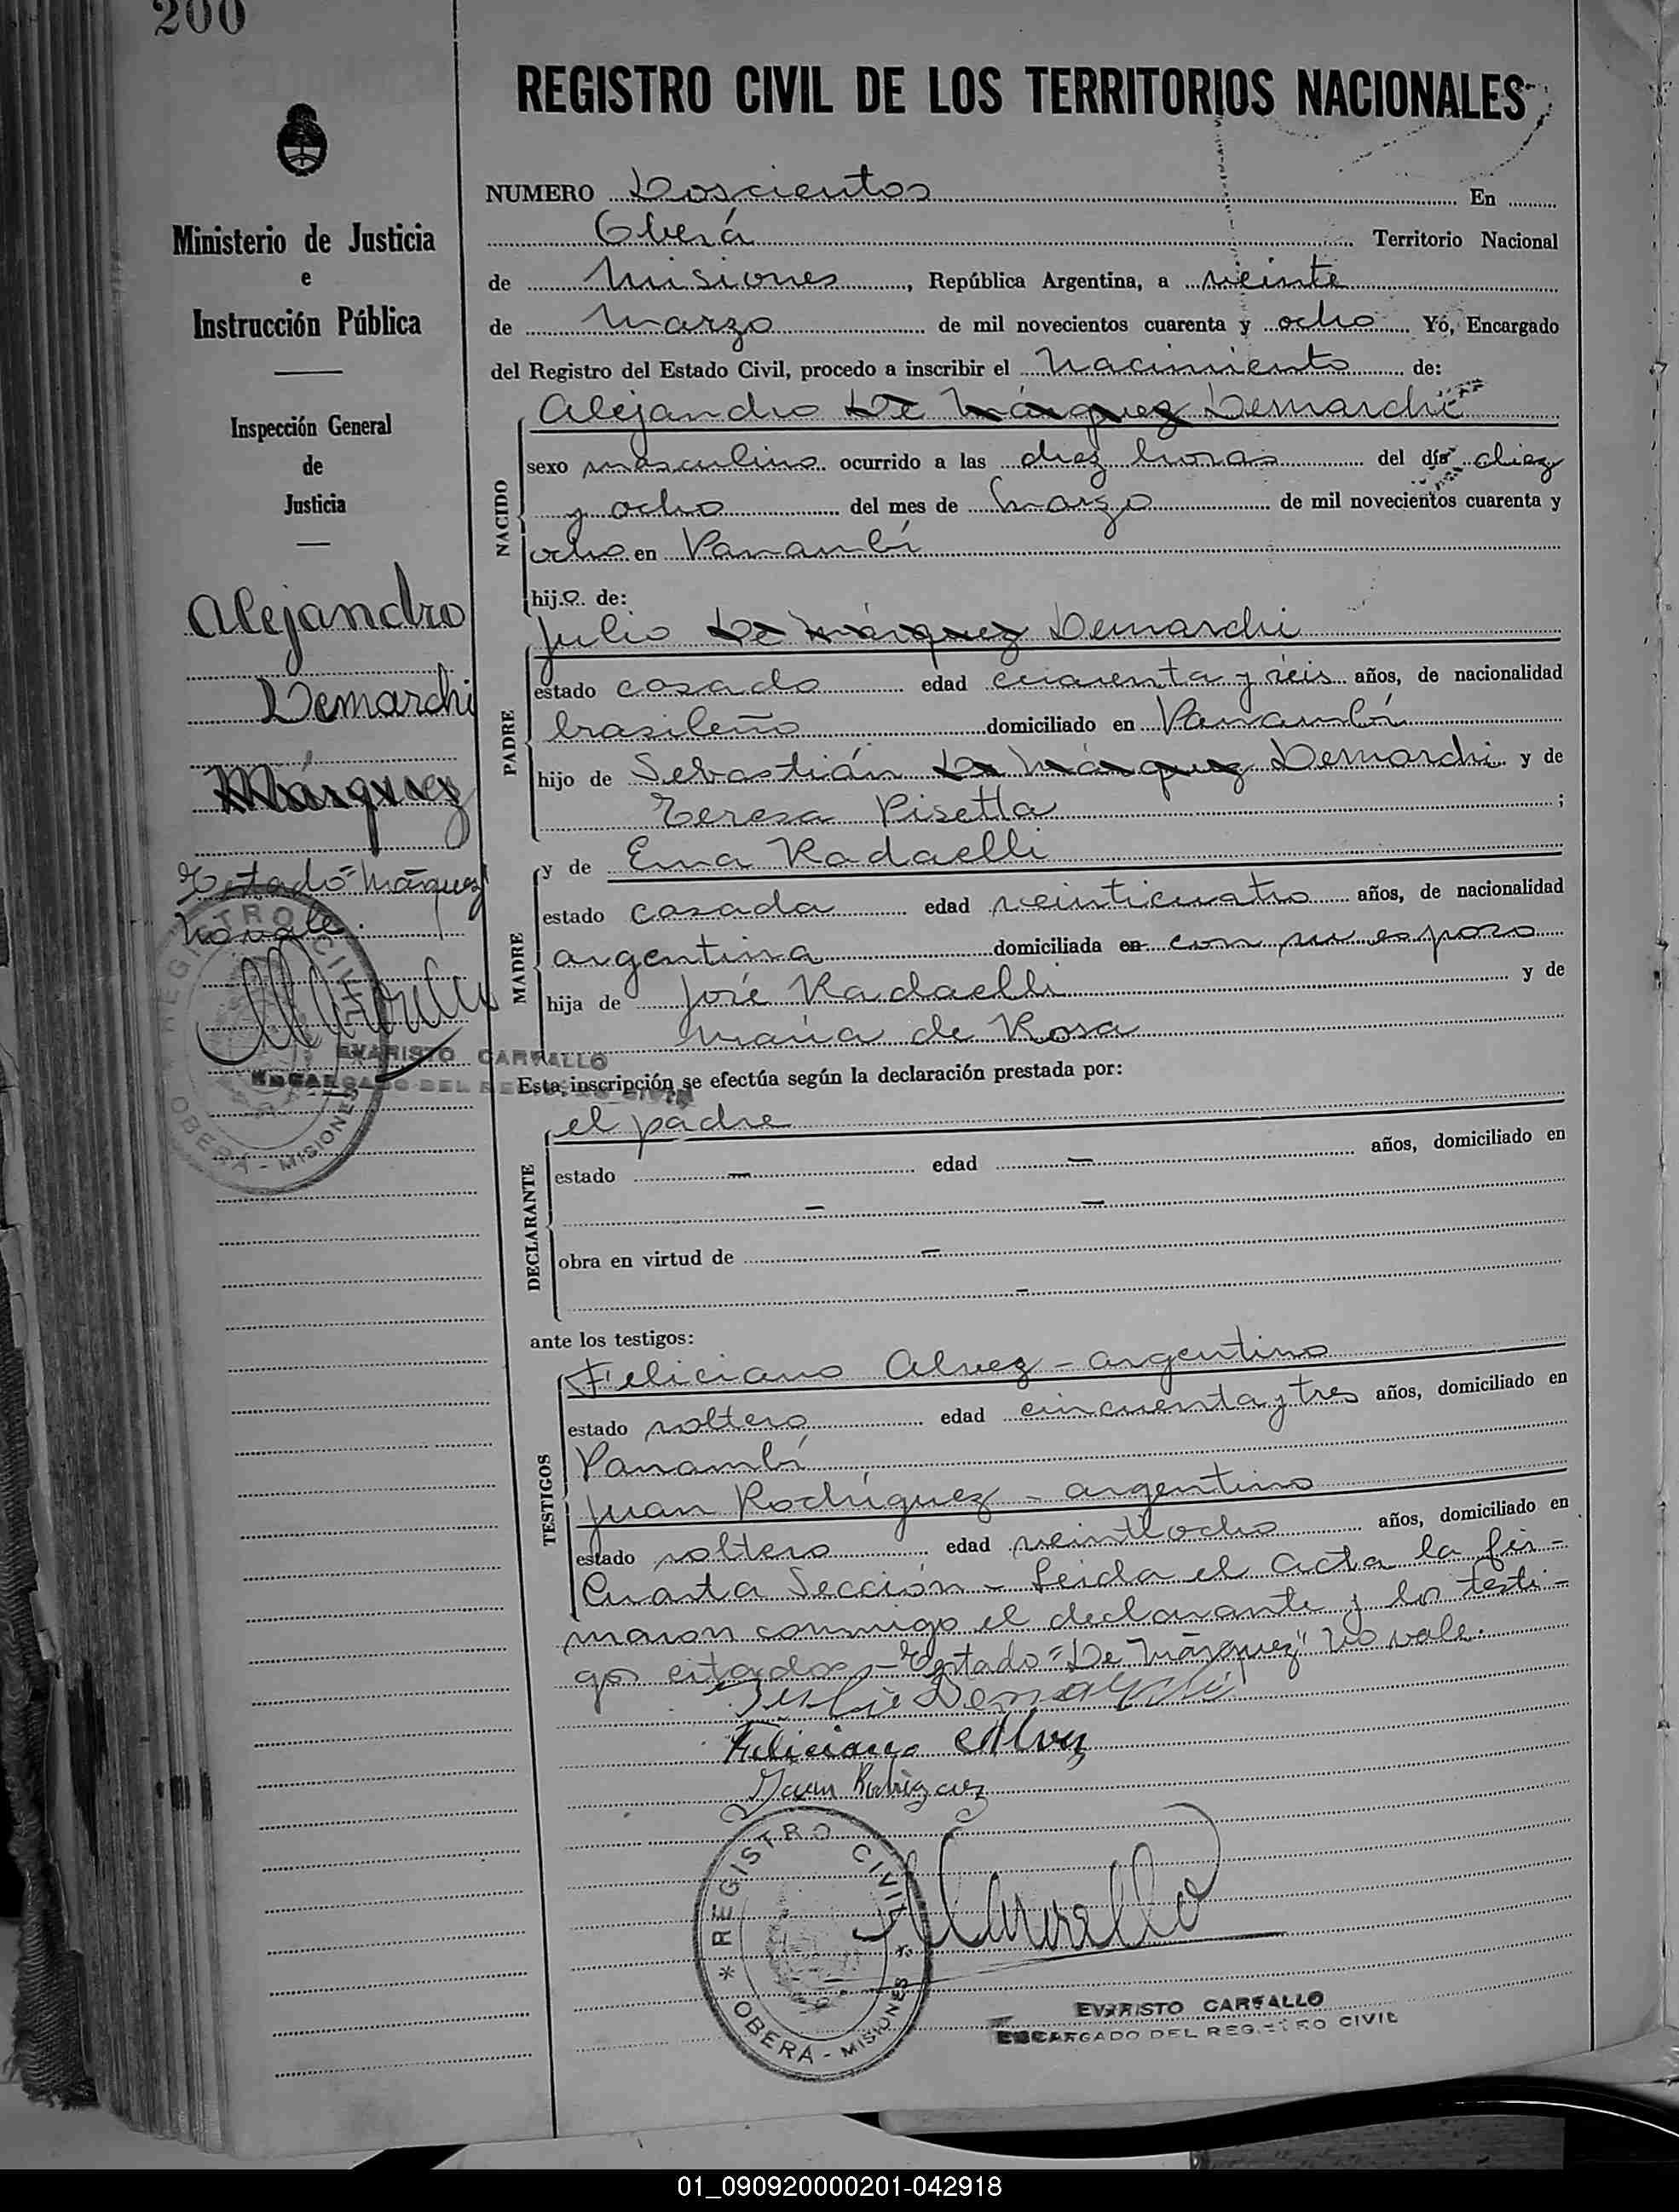 200
REGISTRO CIVIL DE LOS TERRITORIOS NACIONALES
Ministerio de Justicia
e
Instrucción Pública
Inspección General
de
Justicia
Alejandro
Demarchi
Márquez
Testado "Márquez"
no vale.
REGISTRO CIVIL
OBERA - MISIONES
EVARISTO CARVALLO
ENCARGADO DEL REGISTRO CIVIL
NUMERO Doscientos En
Oberá Territorio Nacional
de Misiones, República Argentina, a veinte
de Marzo de mil novecientos cuarenta y ocho Yó, Encargado
del Registro del Estado Civil, procedo a inscribir el Nacimiento de:
NACIDO
Alejandro De Márquez Demarchi
sexo masculino ocurrido a las diez horas del día diez
y ocho del mes de Marzo de mil novecientos cuarenta y
ocho en Panambí
hijo de:
PADRE
Julio De Márquez Demarchi
estado casado edad cuarenta y seis años, de nacionalidad
brasileño domiciliado en Panambí
hijo de Sebastián De Márquez Demarchi y de
Teresa Pisetta ;
MADRE
y de Ema Radaelli
estado casada edad veinticuatro años, de nacionalidad
argentina domiciliada en con su esposo
hija de José Radaelli y de
María de Rosa
Esta inscripción se efectúa según la declaración prestada por:
DECLARANTE
el padre
estado — edad — años, domiciliado en
— —
obra en virtud de —
—
ante los testigos:
TESTIGOS
Feliciano Alvez - argentino
estado soltero edad cincuenta y tres años, domiciliado en
Panambí
Juan Rodríguez - argentino
estado soltero edad veintiocho años, domiciliado en
Cuarta Sección - Leida el acta la fir-
maron conmigo el declarante y los testi-
gos citados - Testado "De Márquez" no vale.
Julio Demarchi
Feliciano Alvez
Juan Rodriguez
REGISTRO CIVIL
OBERA - MISIONES
Carvallo
EVARISTO CARVALLO
ENCARGADO DEL REGISTRO CIVIL
01_090920000201-042918